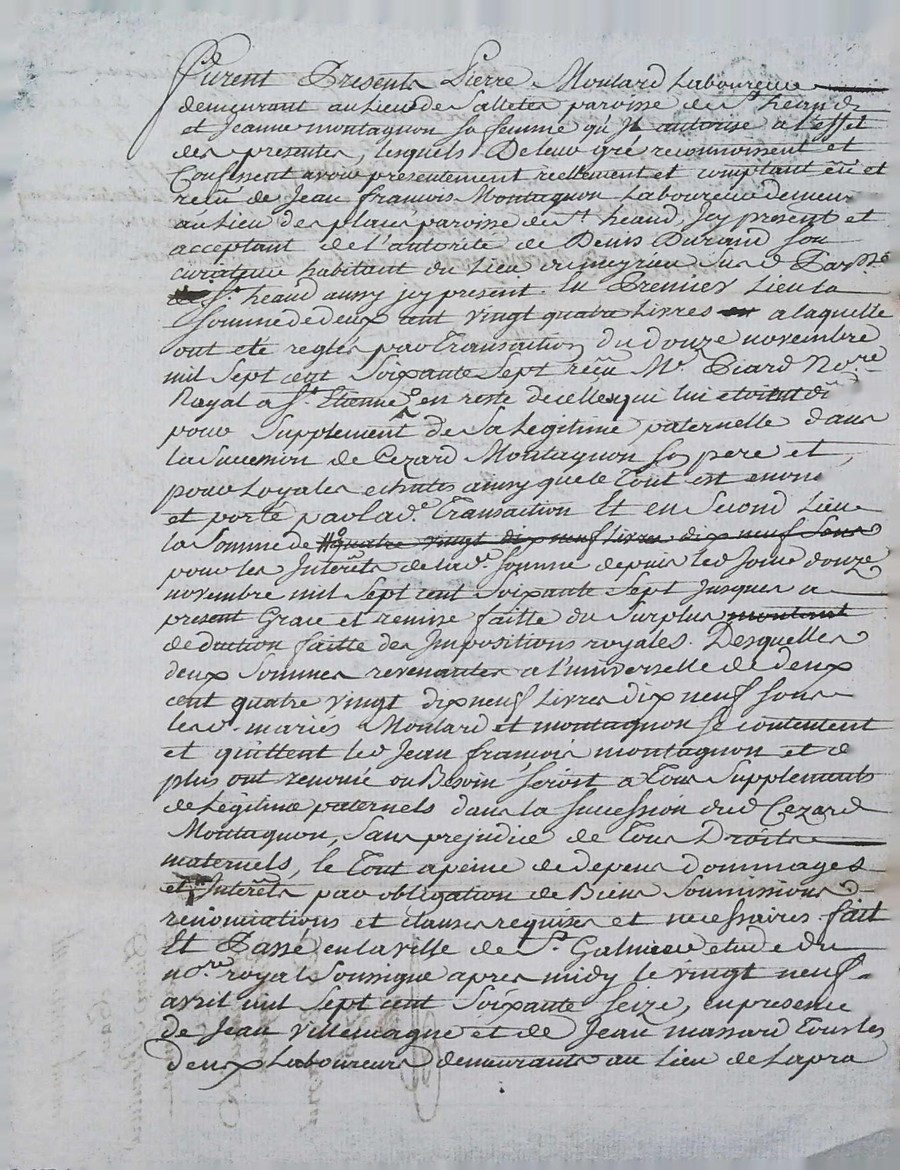 Furent Presents Pierre Moulard Laboureur
demeurant au Lieu de Salletes paroisse de St heand
et Jeanne montagnon sa femme qu'il autorise a l'effet
des presentes, lesquels De leur gré reconnoissent et
Confessent avoir presentement reellement et comptant eu et
recu de Jean francois Montagnon Laboureur demeur
au Lieu des plans paroisse de St heand, Icy present et
acceptant de l'autorité de Denis Durand son
curateur habitant du Lieu de meyrieu Sus d. Parsse
St heand aussy icy present. En Premier Lieu la
Somme de deux cent vingt quatre Livres a laquelle
ont eté reglés par Transaction du douze novembre
mil Sept cent Soixante Sept recu Me Piard Nore
Royal a St Etienne en reste de celle qui lui etoit du
pour Supplement de Sa Legitime paternelle dans
la Succession de Cezard Montagnon Son pere et
pour Loyales echutes ainsy que le Tout est enoncé
et porté par lad. Transaction Et en Second Lieu
la Somme de quatre vingt dix neuf Livres dix neuf Sous
pour les Interêts de lad. Somme depuis led Jour douze
novembre mil Sept cent Soixante Sept Jusques a
present Grace et remise faitte du Surplus montant
deduction faitte des Impositions royales. Desquelles
deux Sommes revenantes a l'universelle de deux
cent quatre vingt dix neuf Livres dix neuf Sous
les d. mariés Moulard et montagnon se contentent
et quittent led Jean francois montagnon et de
plus ont renoncé ou Besoin seroit a Tous Supplements
de Légitime paternels dans la succession dud Cezard
Montagnon, Sans prejudice de Tous Droits
maternels, le Tout a peine de depens Dommages
et Interêts par obligation de Biens Soumissions
renonciations et clauses requises et necessaires fait
Et Passé en la ville de St Galmier etude du
nore royal Soussigné apres midy le vingt neuf
avril mil Sept cent Soixante Seize, en presence
de Jean Villemagne et de Jean massard Tous les
deux Laboureurs demeurants au Lieu de Lapra